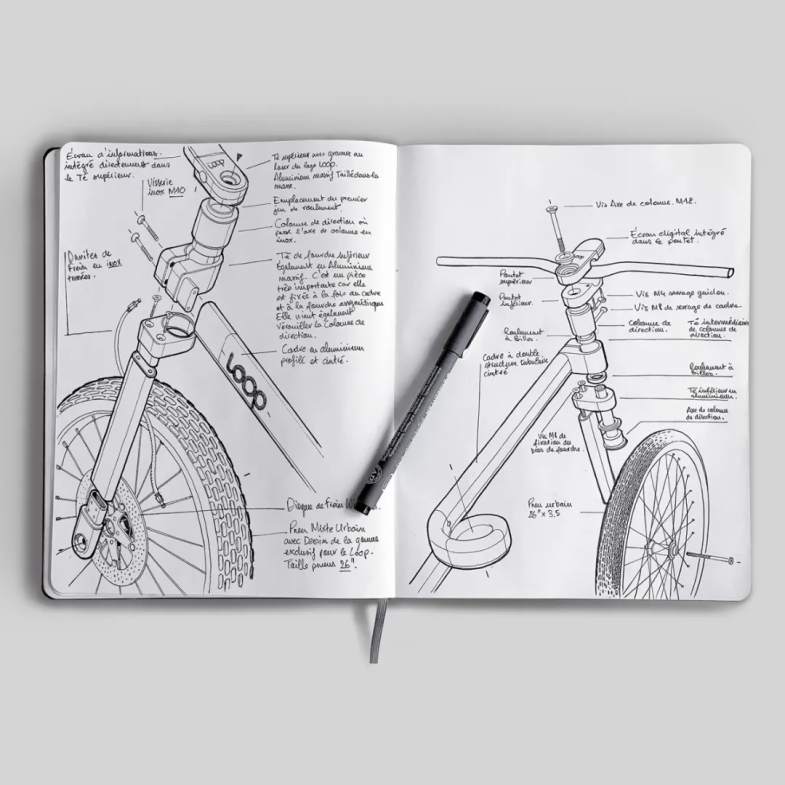 Écran d'informations
intégré directement dans
le Té supérieur.
Visserie
inox M10
LOOP
Té supérieur avec gravure au
Laser du logo LOOP.
Aluminium massif Taillé dans la
masse.
Emplacement du premier
jeu de roulement.
Colonne de direction où
passe l'axe de colonne en
inox.
Durites de
Frein en inox
tressées.
Té de fourche inférieur
Également en Aluminium
massif. C'est un pièce
très importante car elle
est fixée à la fois au cadre
et à la fourche
Elle vient également
verrouiller la Colonne de
direction.
Cadre en aluminium
profilé et cintré.
LOOP
Disque de Frein
Pneu Mixte Urbain
avec Dessin de la gomme
exclusif pour le Loop.
Taille pneus 26".
Vis Axe de colonne. M18.
Écran digital intégré
dans le pontet.
Pontet
supérieur
Pontet
inférieur.
Vis M4 serrage guidon.
Vis M8 de serrage de cadre.
Roulement
à Billes.
Colonne de
direction.
Té intermédiaire
de colonne de
direction.
Cadre à double
structure tubulaire
cintré
Roulement à
Billes.
Té inférieur en
aluminium.
Axe de colonne
de direction.
fixation des
bras de fourche.
Pneu urbain
26" x 3,5